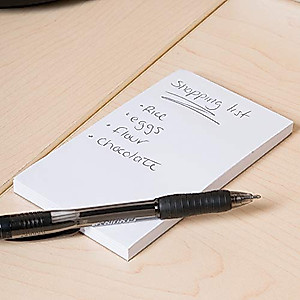 Shopping list
• Rice
• eggs
• flour
• chocolate